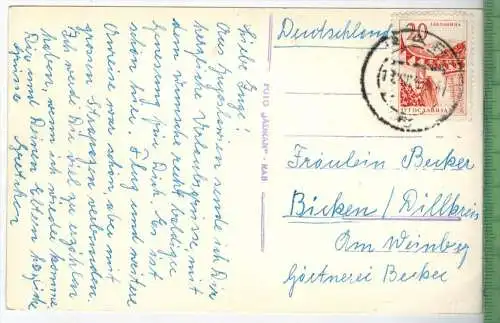 Liebe Inge!
Aus Jugoslawien sende ich Dir
herzliche Urlaubsgrüsse mit
dem Wunsche recht baldiger
Genesung für Dich. Es ist
schön hier. Flug und weitere
Anreise war schön aber mit
grossen Strapazen verbunden.
Ich werde Dir viel zu erzählen
haben, wenn ich wieder komme.
Dir und Deinen Eltern herzliche
Grüsse Gretchen
FOTO
RAB
Deutschland
20
ЈАБЛАНИЦА
ЈУГОСЛАВИЈА
Fräulein Becker
Bicken / Dillkreis
Am Weinberg
Gärtnerei Becker